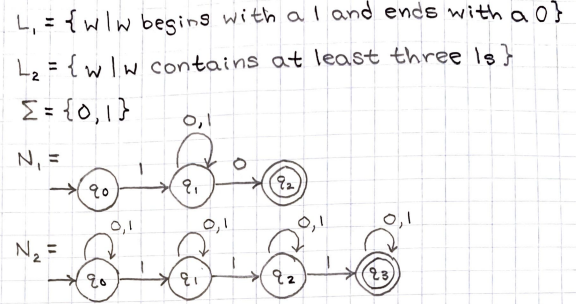 L₁ = { w | w begins with a 1 and ends with a 0 }
L₂ = { w | w contains at least three 1s }
Σ = {0,1}
0,1
N₁ =
1 0
q₀ q₁ q₂
0,1 0,1 0,1 0,1
N₂ =
1 1 1
q₀ q₁ q₂ q₃